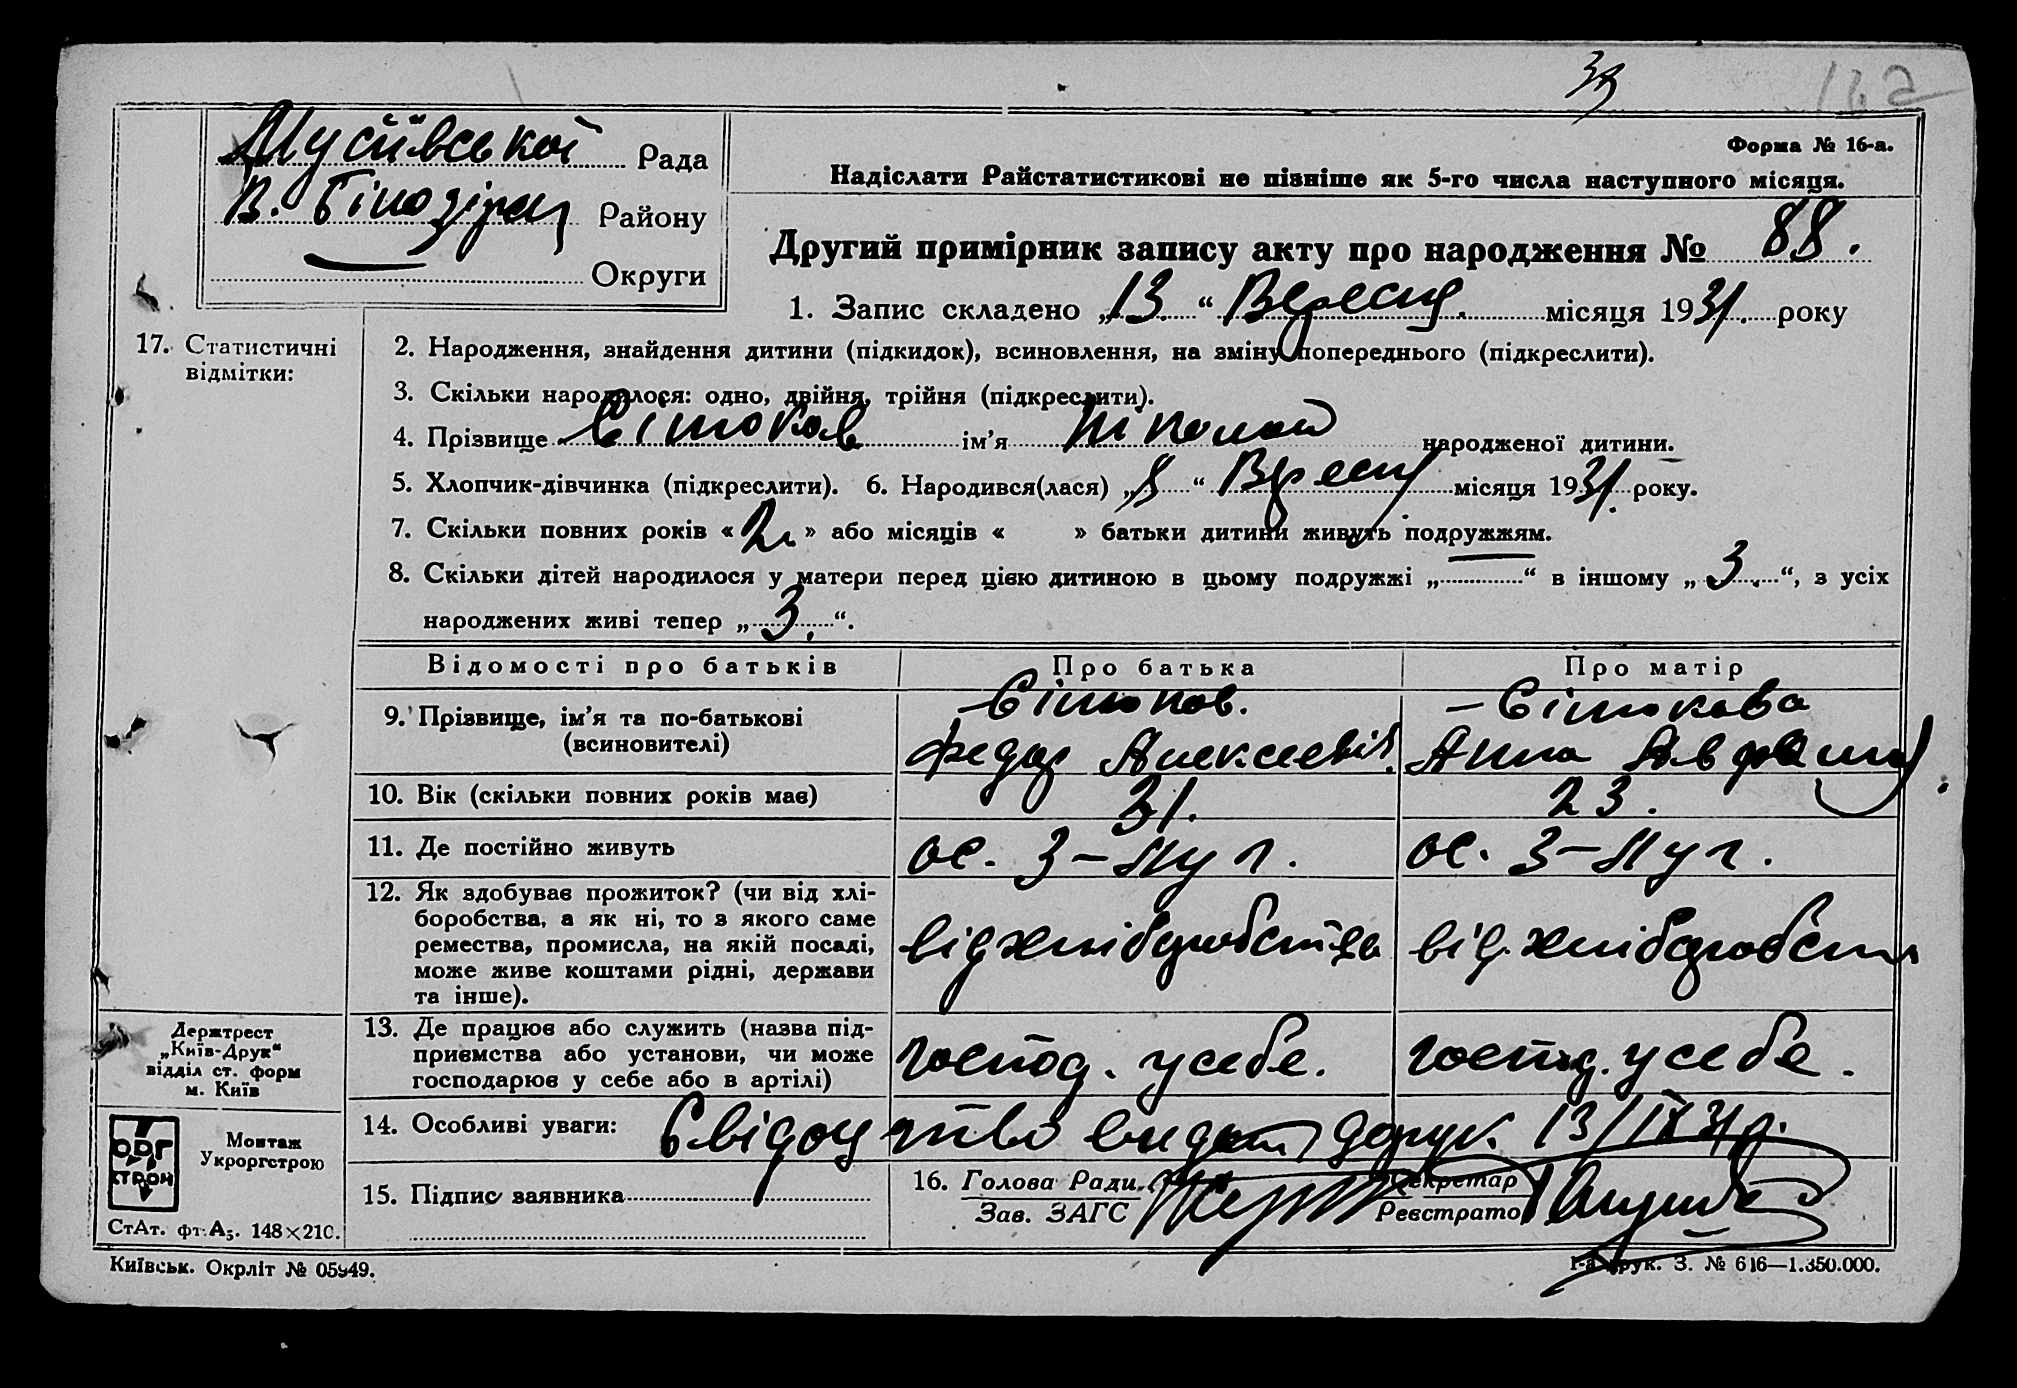 162
Мусіївської Рада
В. Білозірк Району
Округи
Форма № 16-а.
Надіслати Райстатистикові не пізніше як 5-го числа наступного місяця.
Другий примірник запису акту про народження № 88.
1. Запис складено „13“ Вересня місяця 1931. року
17. Статистичні
відмітки:
2. Народження, знайдення дитини (підкидок), всиновлення, на зміну попереднього (підкреслити).
3. Скільки народилося: одно, двійня, трійня (підкреслити).
4. Прізвище Єітюков ім’я Ніколай народженої дитини.
5. Хлопчик-дівчинка (підкреслити). 6. Народився(лася) „8“ Вересня місяця 1931. року.
7. Скільки повних років «2» або місяців « » батьки дитини живуть подружжям.
8. Скільки дітей народилося у матери перед цією дитиною в цьому подружжі „ “ в іншому „3.“, з усіх
народжених живі тепер „3.“.
Відомості про батьків Про батька Про матір
9. Прізвище, ім’я та по-батькові
(всиновителі)
Федор Алексеевіч.
Анна
10. Вік (скільки повних років має) 31. 23.
11. Де постійно живуть ос. 3-Луг. ос. 3-Луг.
12. Як здобуває прожиток? (чи від хлі-
боробства, а як ні, то з якого саме
ремества, промисла, на якій посаді,
може живе коштами рідні, держави
та інше).
від хліборобства від. хліборобств
13. Де працює або служить (назва під-
приємства або установи, чи може
господарює у себе або в артілі)
господ. у себе. господ. у себе.
14. Особливі уваги: Свідоцтво видат 13/IX 31 р.
15. Підпис заявника
16. Голова Ради Секретар
Зав. ЗАГС Реєстратор
Держтрест
„Київ-Друк“
відділ ст. форм
м. Київ
ОРГ
СТРОЙ
Монтаж
Укроргстрою
СтАт. фт. А5. 148×210.
Київськ. Окрліт № 05949.
1-а друк. З. № 616—1.350.000.